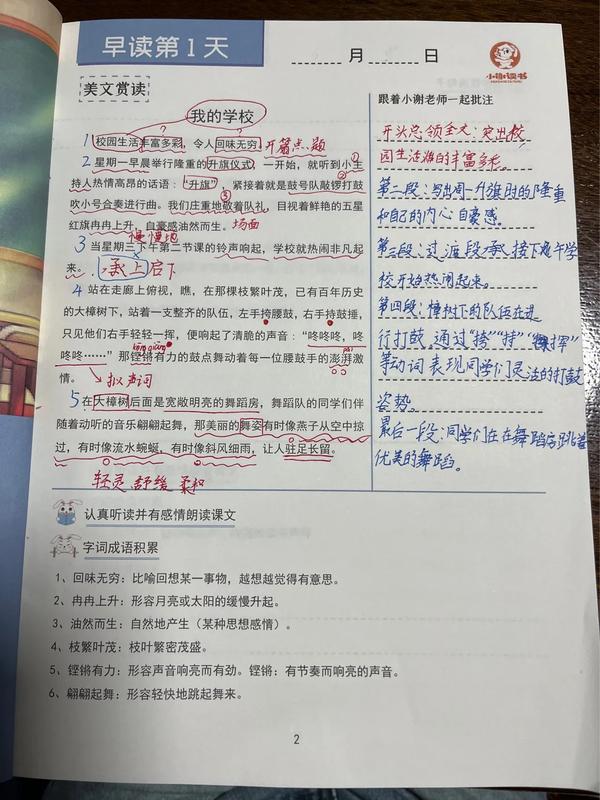 早读第1天
月 日
小谢读书
美文赏读
我的学校
1 校园生活丰富多彩，令人回味无穷。 开篇点题
2 星期一早晨举行隆重的升旗仪式，一开始，就听到小主 ①
持人热情高昂的话语：“升旗”，紧接着就是鼓号队敲锣打鼓 ②
吹小号合奏进行曲。我们庄重地敬着队礼，目视着鲜艳的五星 ③
红旗冉冉上升，自豪感油然而生。 场面
慢慢地
3 当星期三下午第二节课的铃声响起，学校就热闹非凡起
来。 承上启下
4 站在走廊上俯视，瞧，在那棵枝繁叶茂，已有百年历史
的大樟树下，站着一支整齐的队伍，左手挎腰鼓，右手持鼓捶，
只见他们右手轻轻一挥，便响起了清脆的声音：“咚咚咚，咚
咚咚……”那铿锵有力的鼓点舞动着每一位腰鼓手的澎湃激
情。 拟声词
5 在大樟树后面是宽敞明亮的舞蹈房，舞蹈队的同学们伴
随着动听的音乐翩翩起舞，那美丽的舞姿有时像燕子从空中掠
过，有时像流水蜿蜒，有时像斜风细雨，让人驻足长留。
轻灵 舒缓 柔和
跟着小谢老师一起批注
开头总领全文：突出校
园生活的丰富多彩。
第二段：写出周一升旗时的隆重
和自己的内心自豪感。
第三段：过渡段，承接下为学
校开始热闹起来。
第四段：樟树下的队伍在进
行打鼓，通过“挎”“持”“挥”
等动词表现同学们灵活的打鼓
姿势。
最后一段：同学们在在舞蹈房跳着
优美的舞蹈。
认真听读并有感情朗读课文
字词成语积累
1、回味无穷：比喻回想某一事物，越想越觉得有意思。
2、冉冉上升：形容月亮或太阳的缓慢升起。
3、油然而生：自然地产生（某种思想感情）。
4、枝繁叶茂：枝叶繁密茂盛。
5、铿锵有力：形容声音响亮而有劲。铿锵：有节奏而响亮的声音。
6、翩翩起舞：形容轻快地跳起舞来。
2